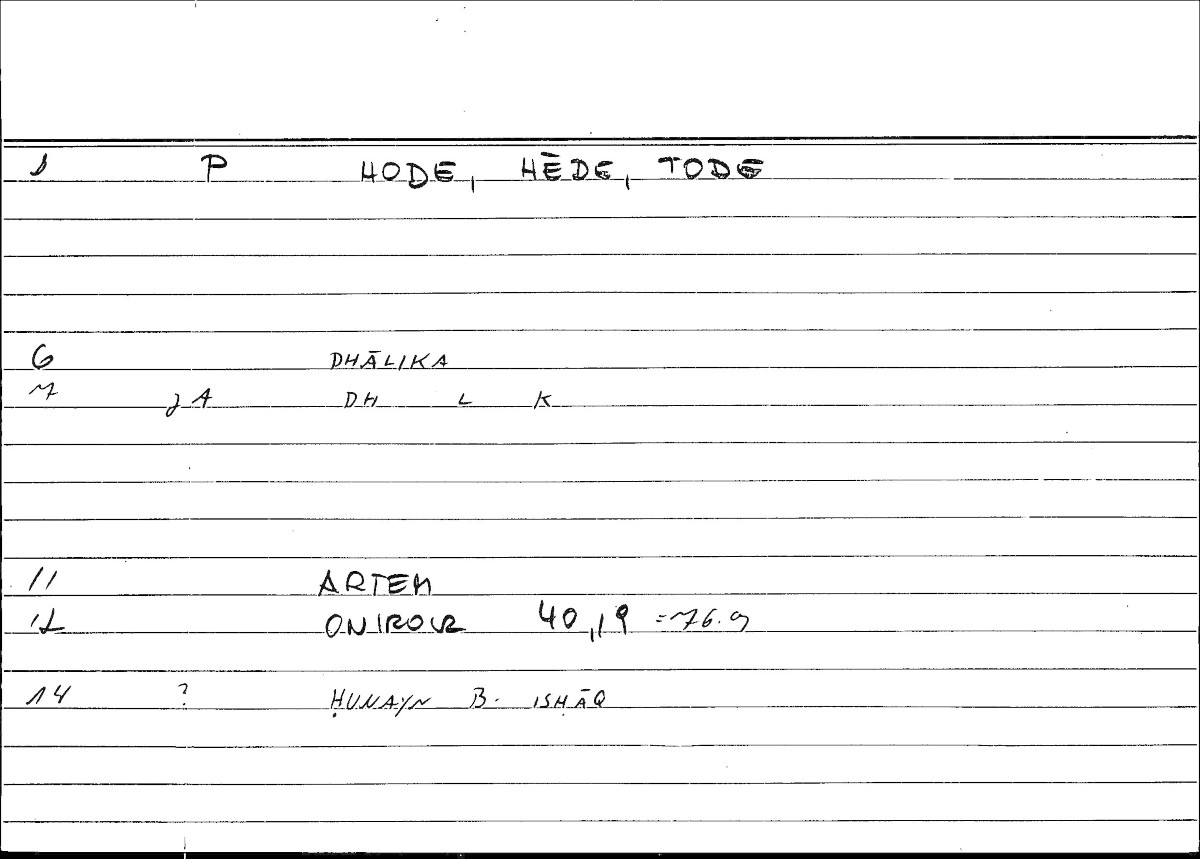 1 P HODE, HĒDE, TODE
6 DHĀLIKA
7 JA DH L K
11 ARTEM
12 ONIROCR 40,19 =76.9
14 ? ḤUNAYN B. ISḤĀQ